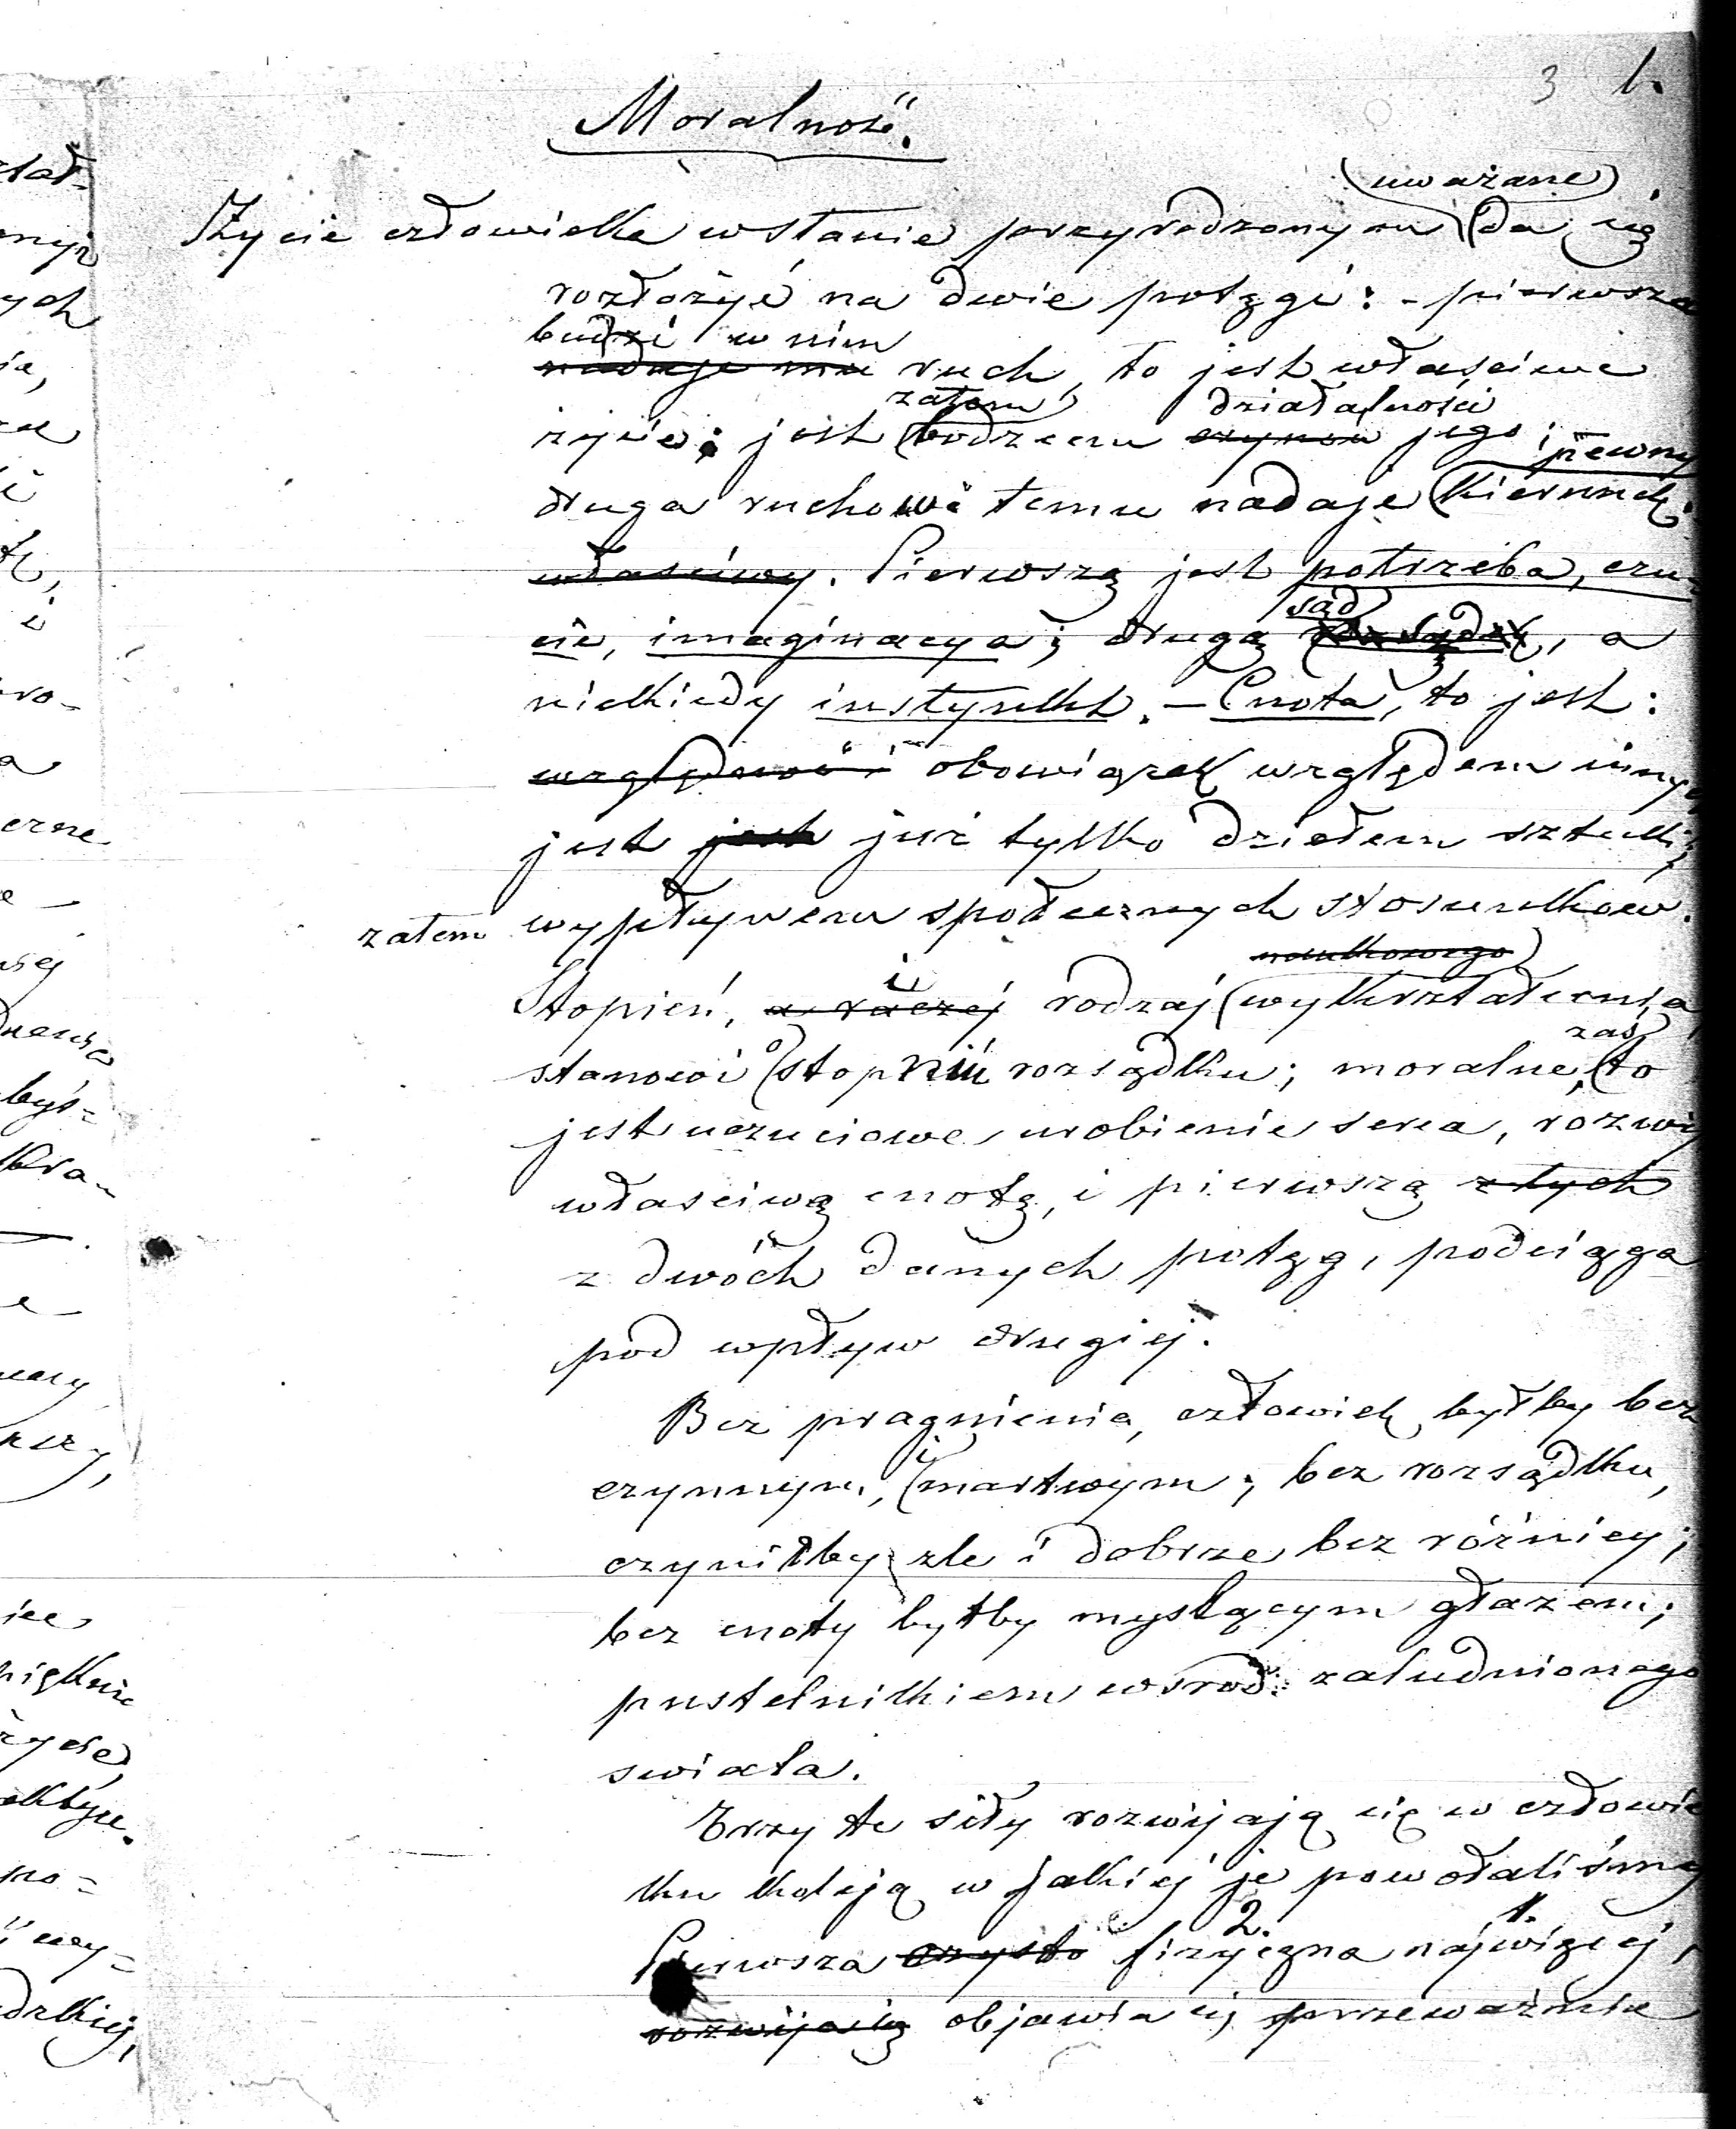 3 1.
Moralność.
(uważane)
Życie człowieka w stanie przyrodzonym da się
rozłożyć na dwie potęgi: - pierwsza
budzi w nim
nadaje mu ruch, to jest właściwe
zatem działalności
życie; jest bodzcem czynów jego;
pewny
druga ruchowi temu nadaje kierunek
właściwy. Pierwszą jest potrzeba, czu=
sąd
cie, imaginacya; drugą rozsądek, a
niekiedy instynkt. — Cnota, to jest:
względność i obowiązek względem innych
jest jest już tylko dziełem sztuki;
zatem wypływem społecznych stosunkow.
naukowego
i
Stopień, a raczej rodzaj wykształcenia
zaś
stanowi o stopniu rozsądku; moralne, to
jest uczuciowe urobienie serca, rozwi
właściwą cnotę, i pierwszą z tych
z dwóch danych potęg, podciąga
pod wpływ drugiej.
Bez pragnienia, człowiek byłby bez
i
czynnym, martwym; bez rozsądku,
czyniłby zle i dobrze bez różnicy;
bez cnoty byłby myslącym głazem;
pustelnikiem wsrod zaludnionego
swiata.
Trzy te siły rozwijają się w człowie
ku koleją w jakiej je powołaliśmy
2. 1.
Pierwsza czysto fizyczna najwięcej,
rozwija się objawia się przeważnie